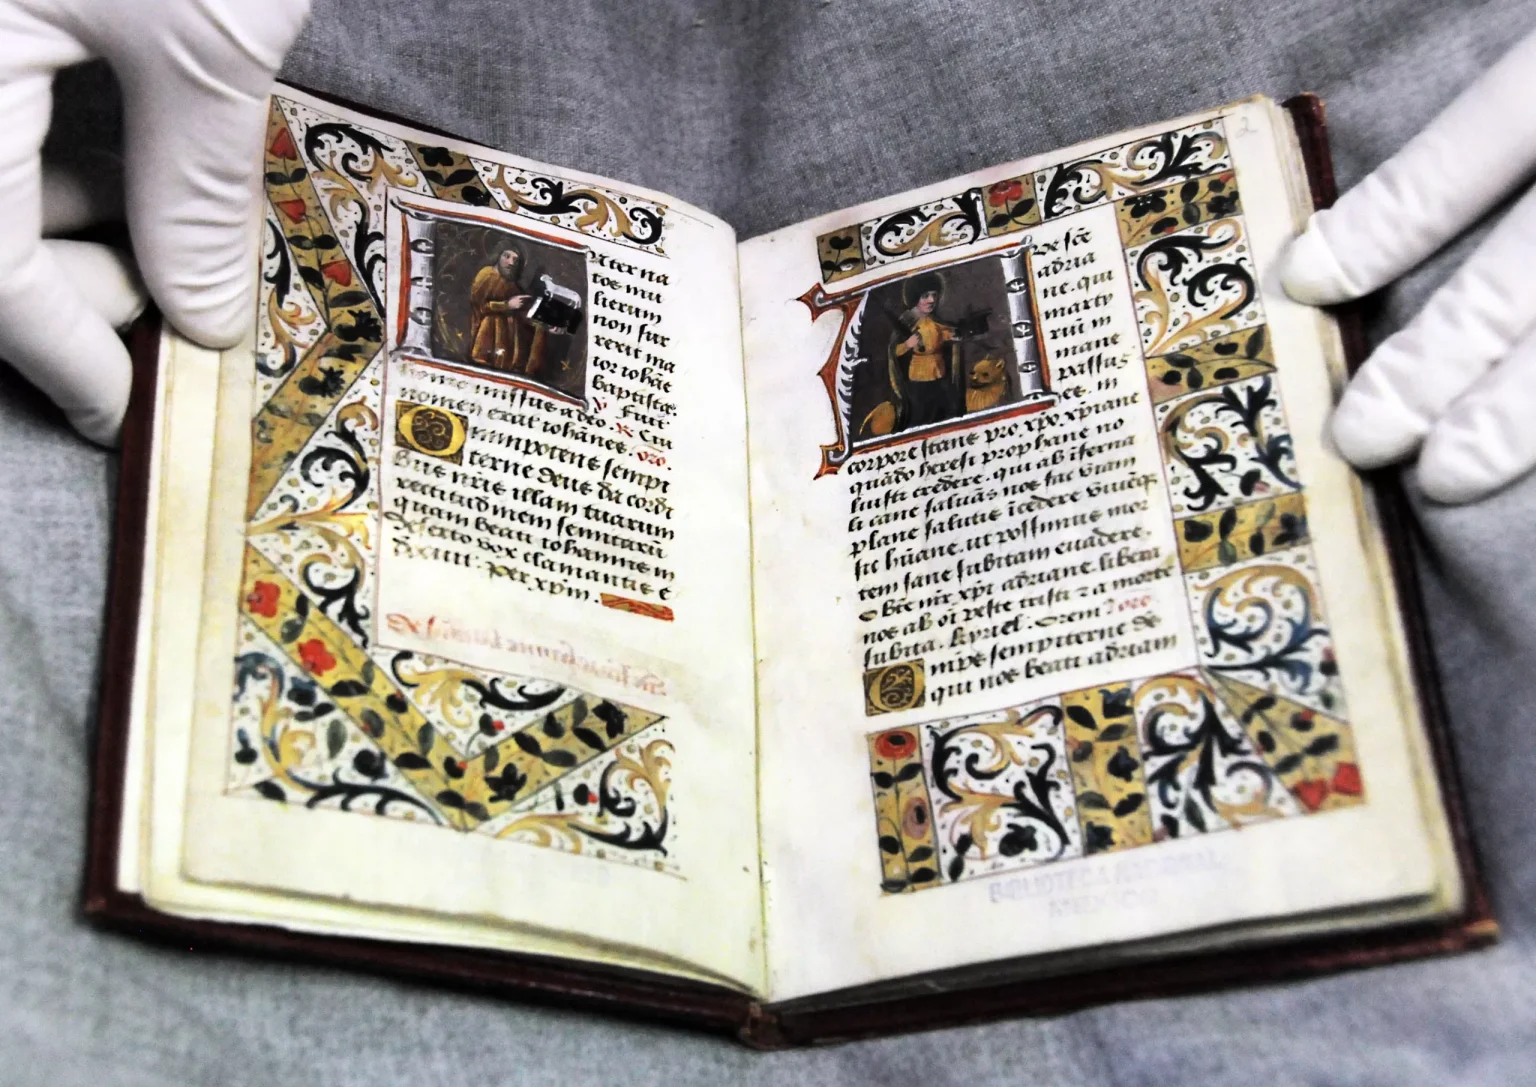 nter na
tos mu
lierum
non sur
rexit ma
ior iohāe
baptista.
℣. Fuit
homo missus a deo. ℟ Cui
nomen erat iohānes. oro.
Omnipotens sempi
terne deus da cordi
bus nr̄is illam tuarum
rectitudinem semitarū
quam beati iohannis in
deserto vox clamantis e
Per xp̄m.
2
adria
ne. qui
marty
rium in
mane
passus
es. in
corpore stans pro. xp̄o. xp̄iane
quādo heresi prophane no
luisti credere. qui ab īferna
li cane saluās nos fac viam
plane salutis īcedere
hūane. ut possimus mor
tem sane subitam euadere.
nos ab oī peste tristi ⁊ a morte
subita. kyriel. Orem⁹ oro
Omp̄s sempiterne d̄s
qui nos beati adriani
BIBLIOTECA NACIONAL